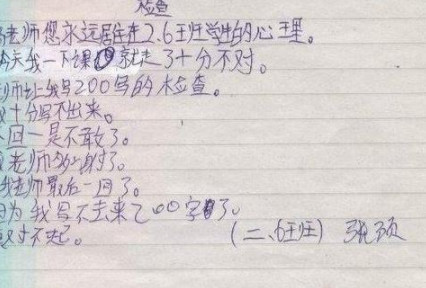 检查
老师您永远居住在2.6班学生的心理。
今天我一下课就走了十分不对。
老师让我写200写的检查。
十分写不出来。
一是不敢了。
老师多谢了。
老师最后一回了。
因为我写不去来200字了。
对不起。 (二、6班) 张